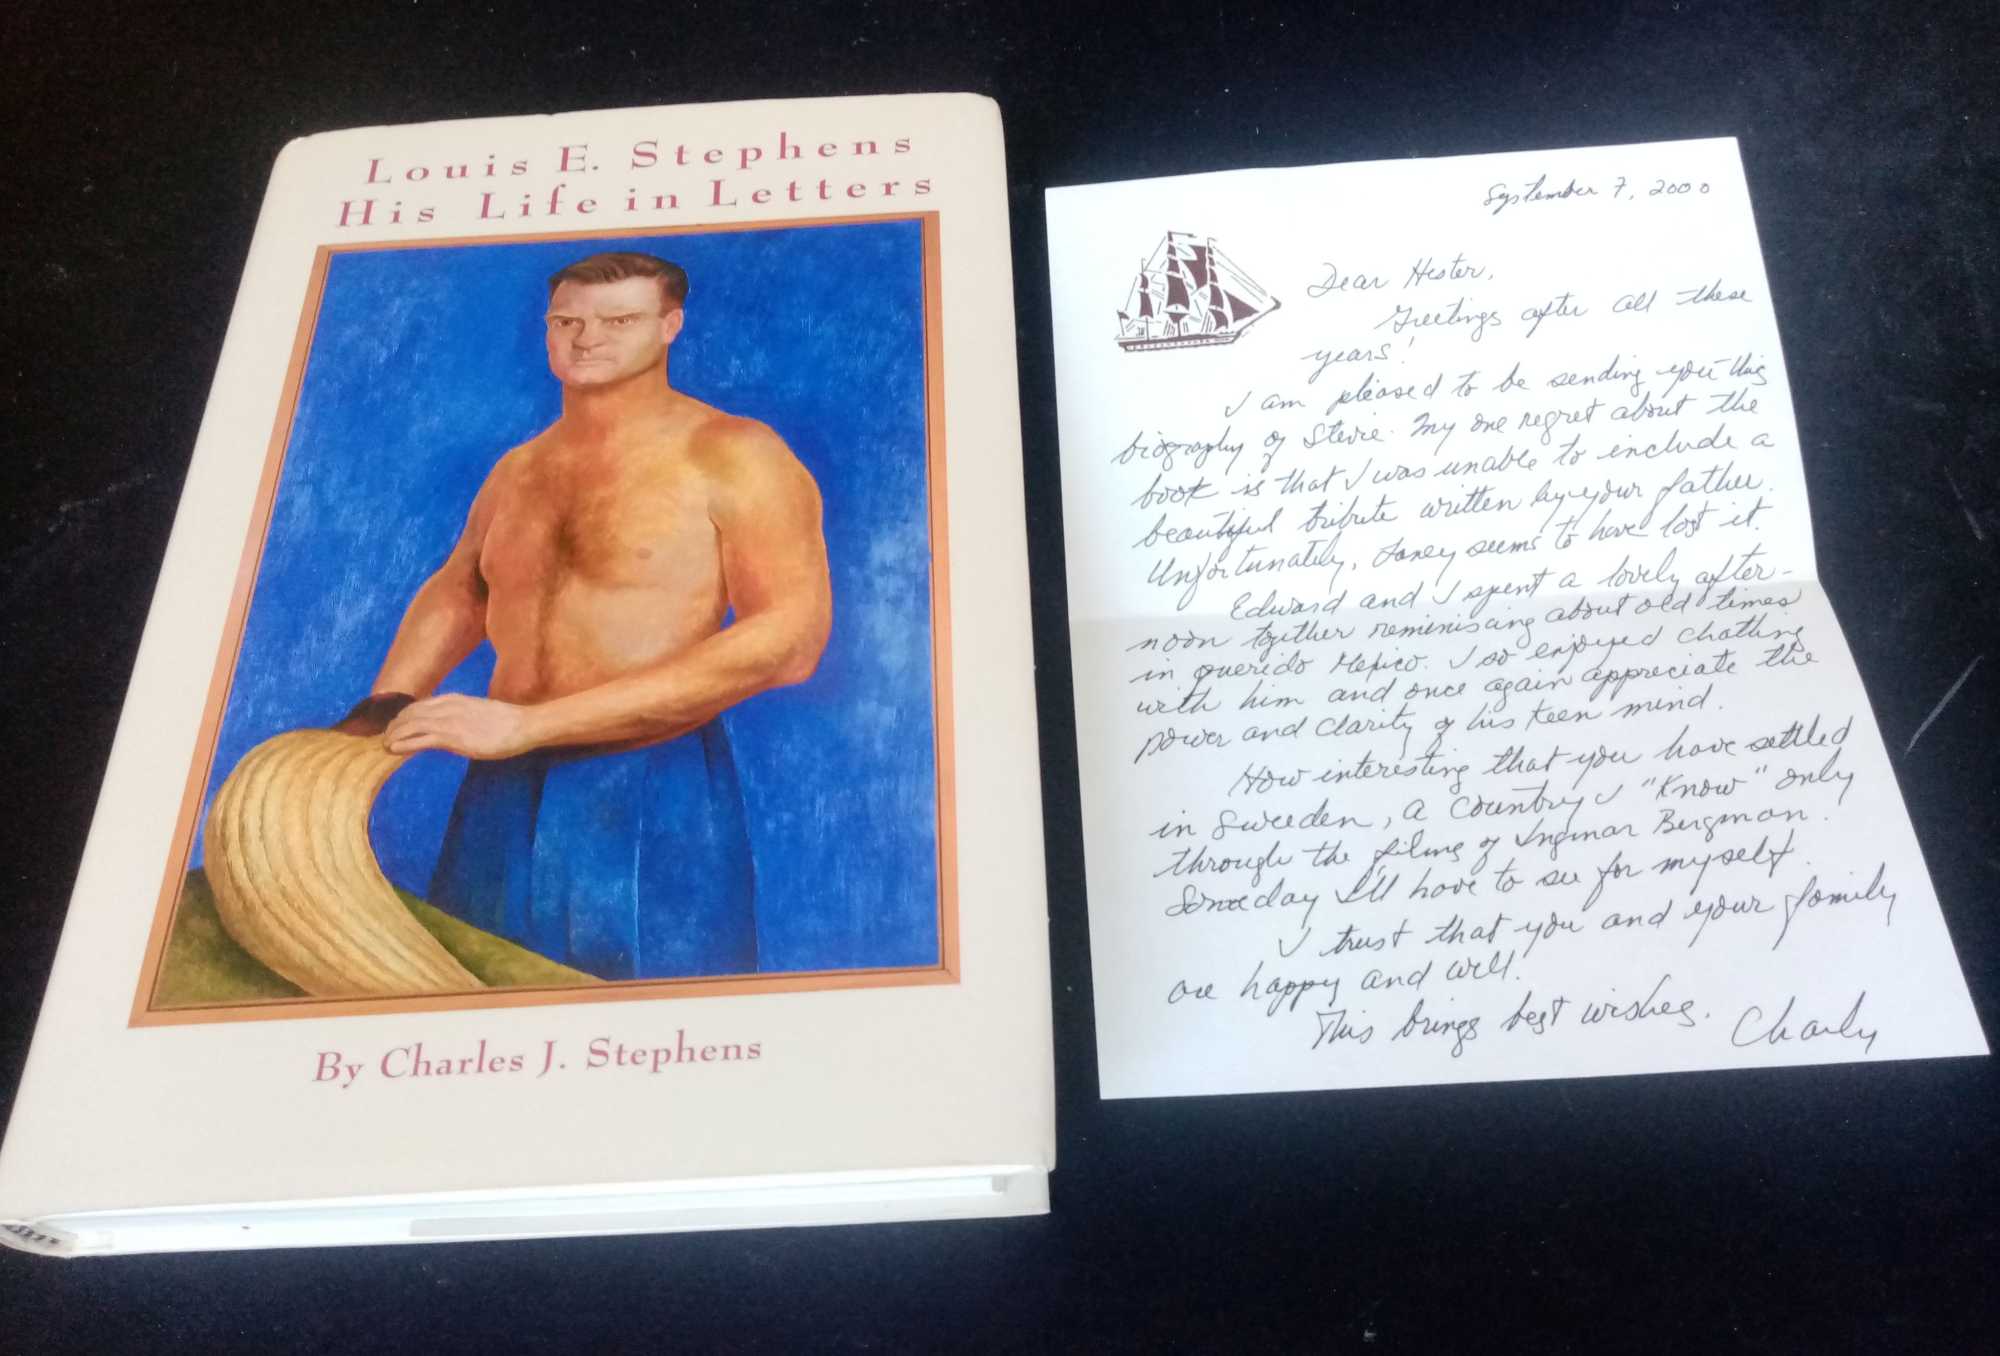 Louis E. Stephens
His Life in Letters
By Charles J. Stephens
September 7, 2000
Dear Hester,
Greetings after all these
years!
I am pleased to be sending you this
biography of Stevie. My one regret about the
book is that I was unable to include a
beautiful tribute written by your father.
Unfortunately, Laney seems to have lost it.
Edward and I spent a lovely after-
noon together reminiscing about old times
in querido Mexico. I so enjoyed chatting
with him and once again appreciate the
power and clarity of his keen mind.
How interesting that you have settled
in Sweden, a country I "know" only
through the films of Ingmar Bergman.
Someday I'll have to see for myself.
I trust that you and your family
are happy and well.
This brings best wishes.
Charly